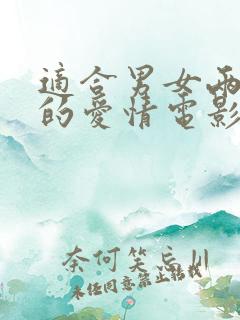 適合男女兩
的愛情電影
奈何笑忘川
未经同意禁止转载